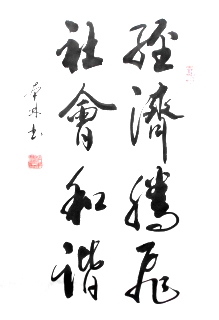 經濟騰飛
社會和諧